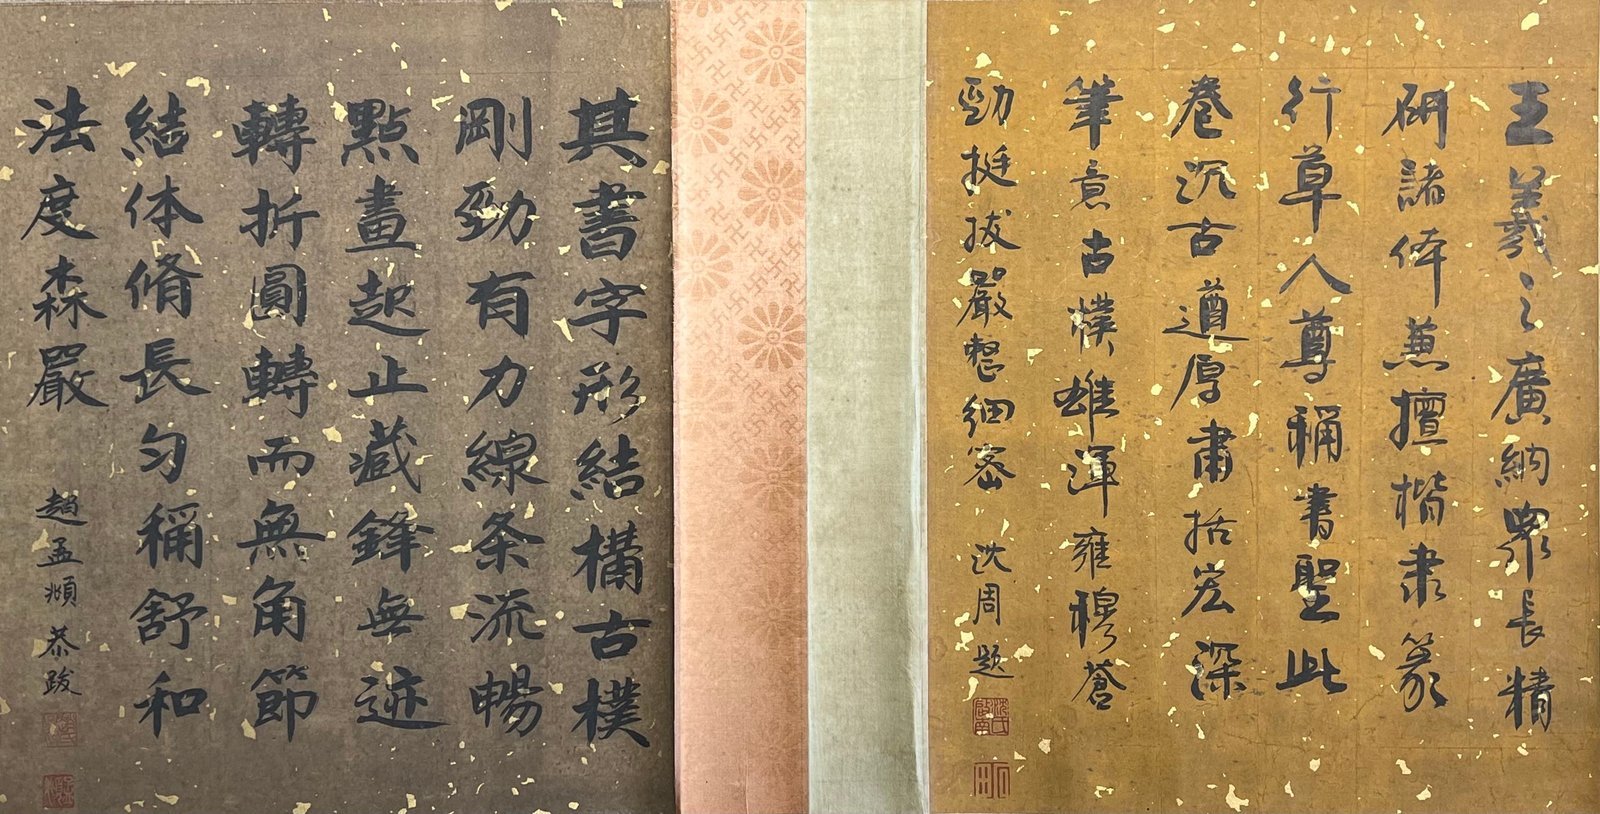 王羲之廣納眾長精
研諸体兼擅楷隶篆
行草人尊稱書聖此
卷沉古遒厚肅括宏深
筆意古樸雄渾雍穆蒼
勁挺拔嚴整細密 沈周題
其書字形結構古樸
剛勁有力線条流暢
點畫起止藏鋒無迹
轉折圓轉而無角節
結体脩長勻稱舒和
法度森嚴 趙孟頫恭跋